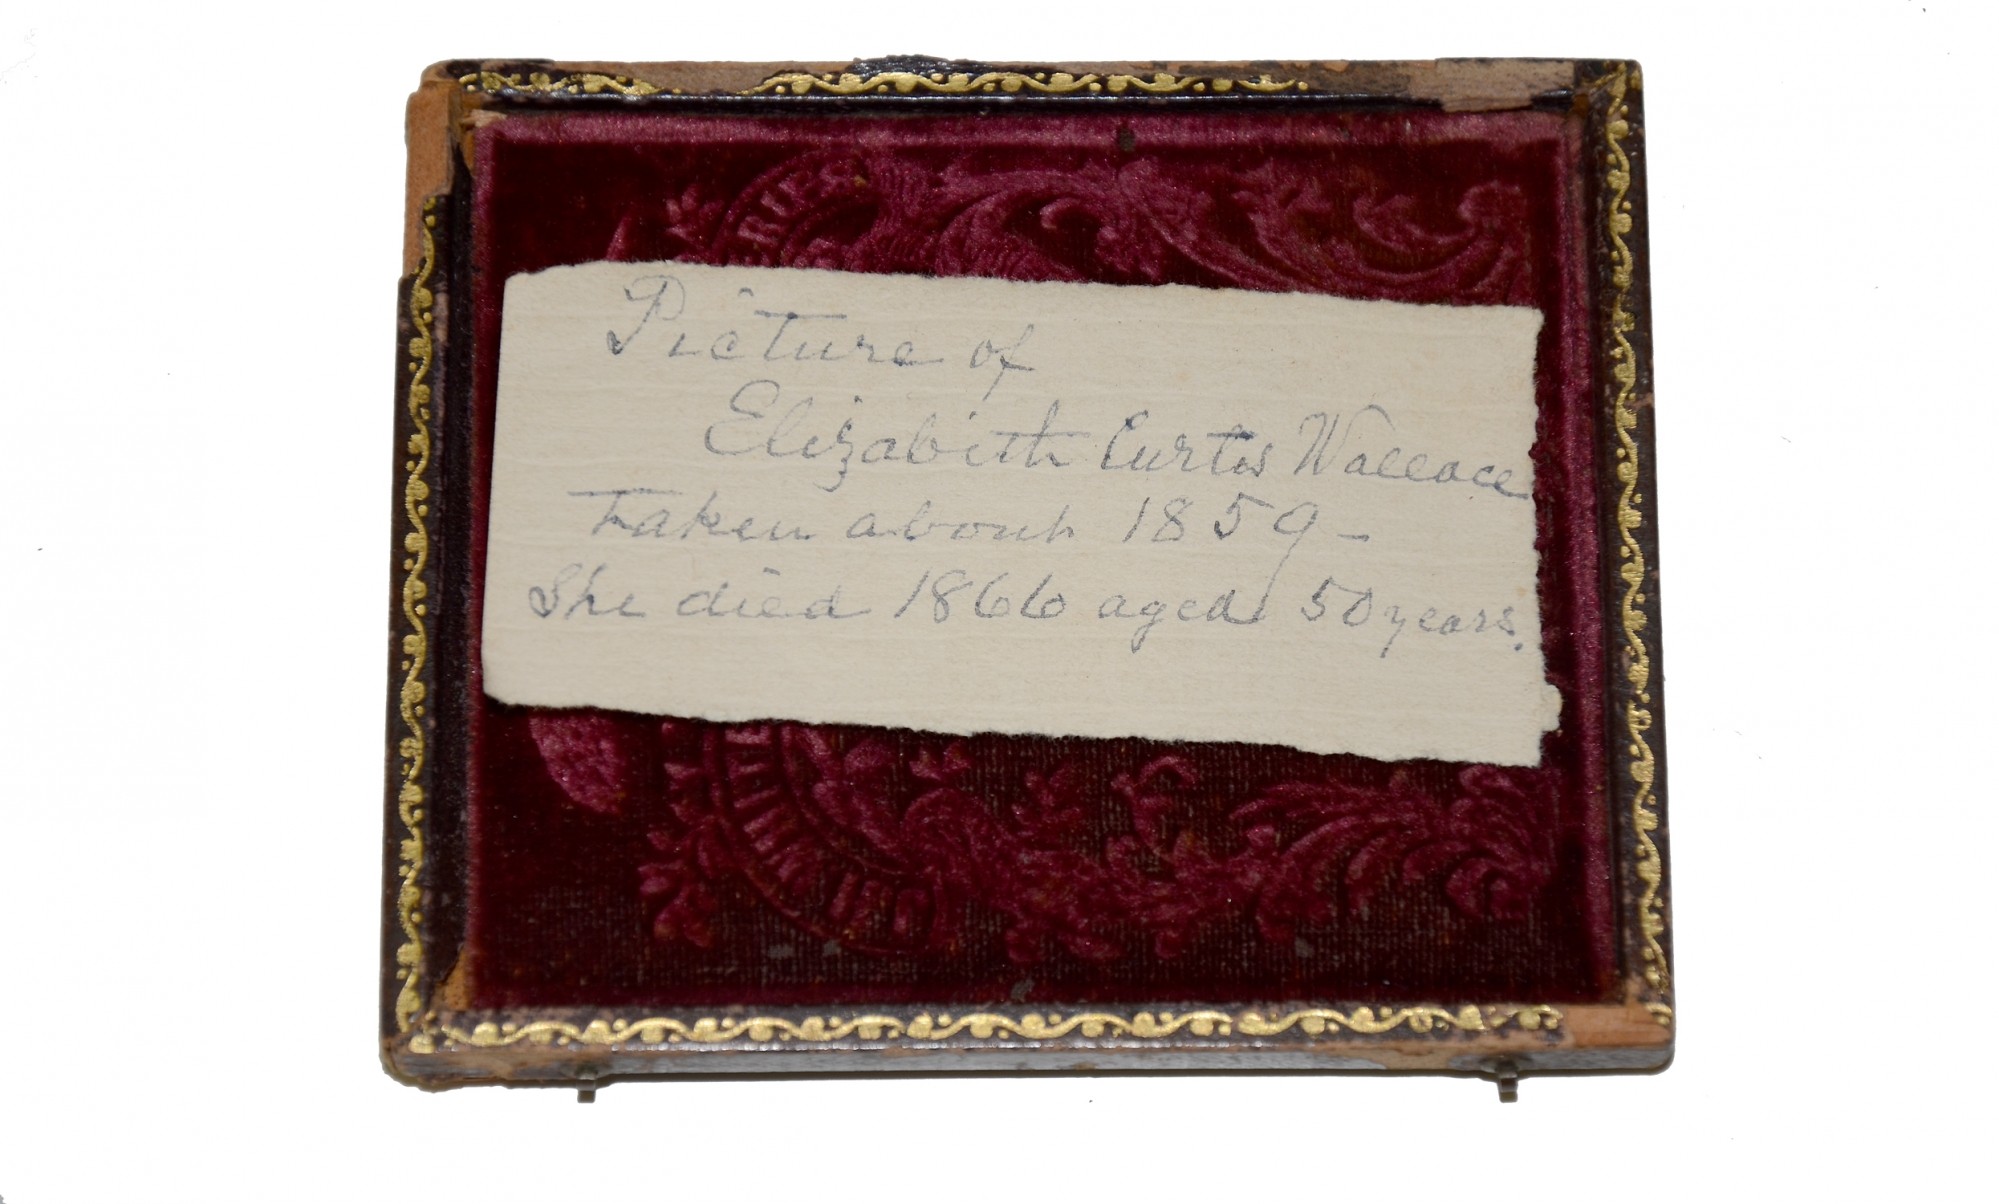 Picture of
Elizabeth Curtis Wallace
Taken about 1859 -
She died 1866 aged 50 years.